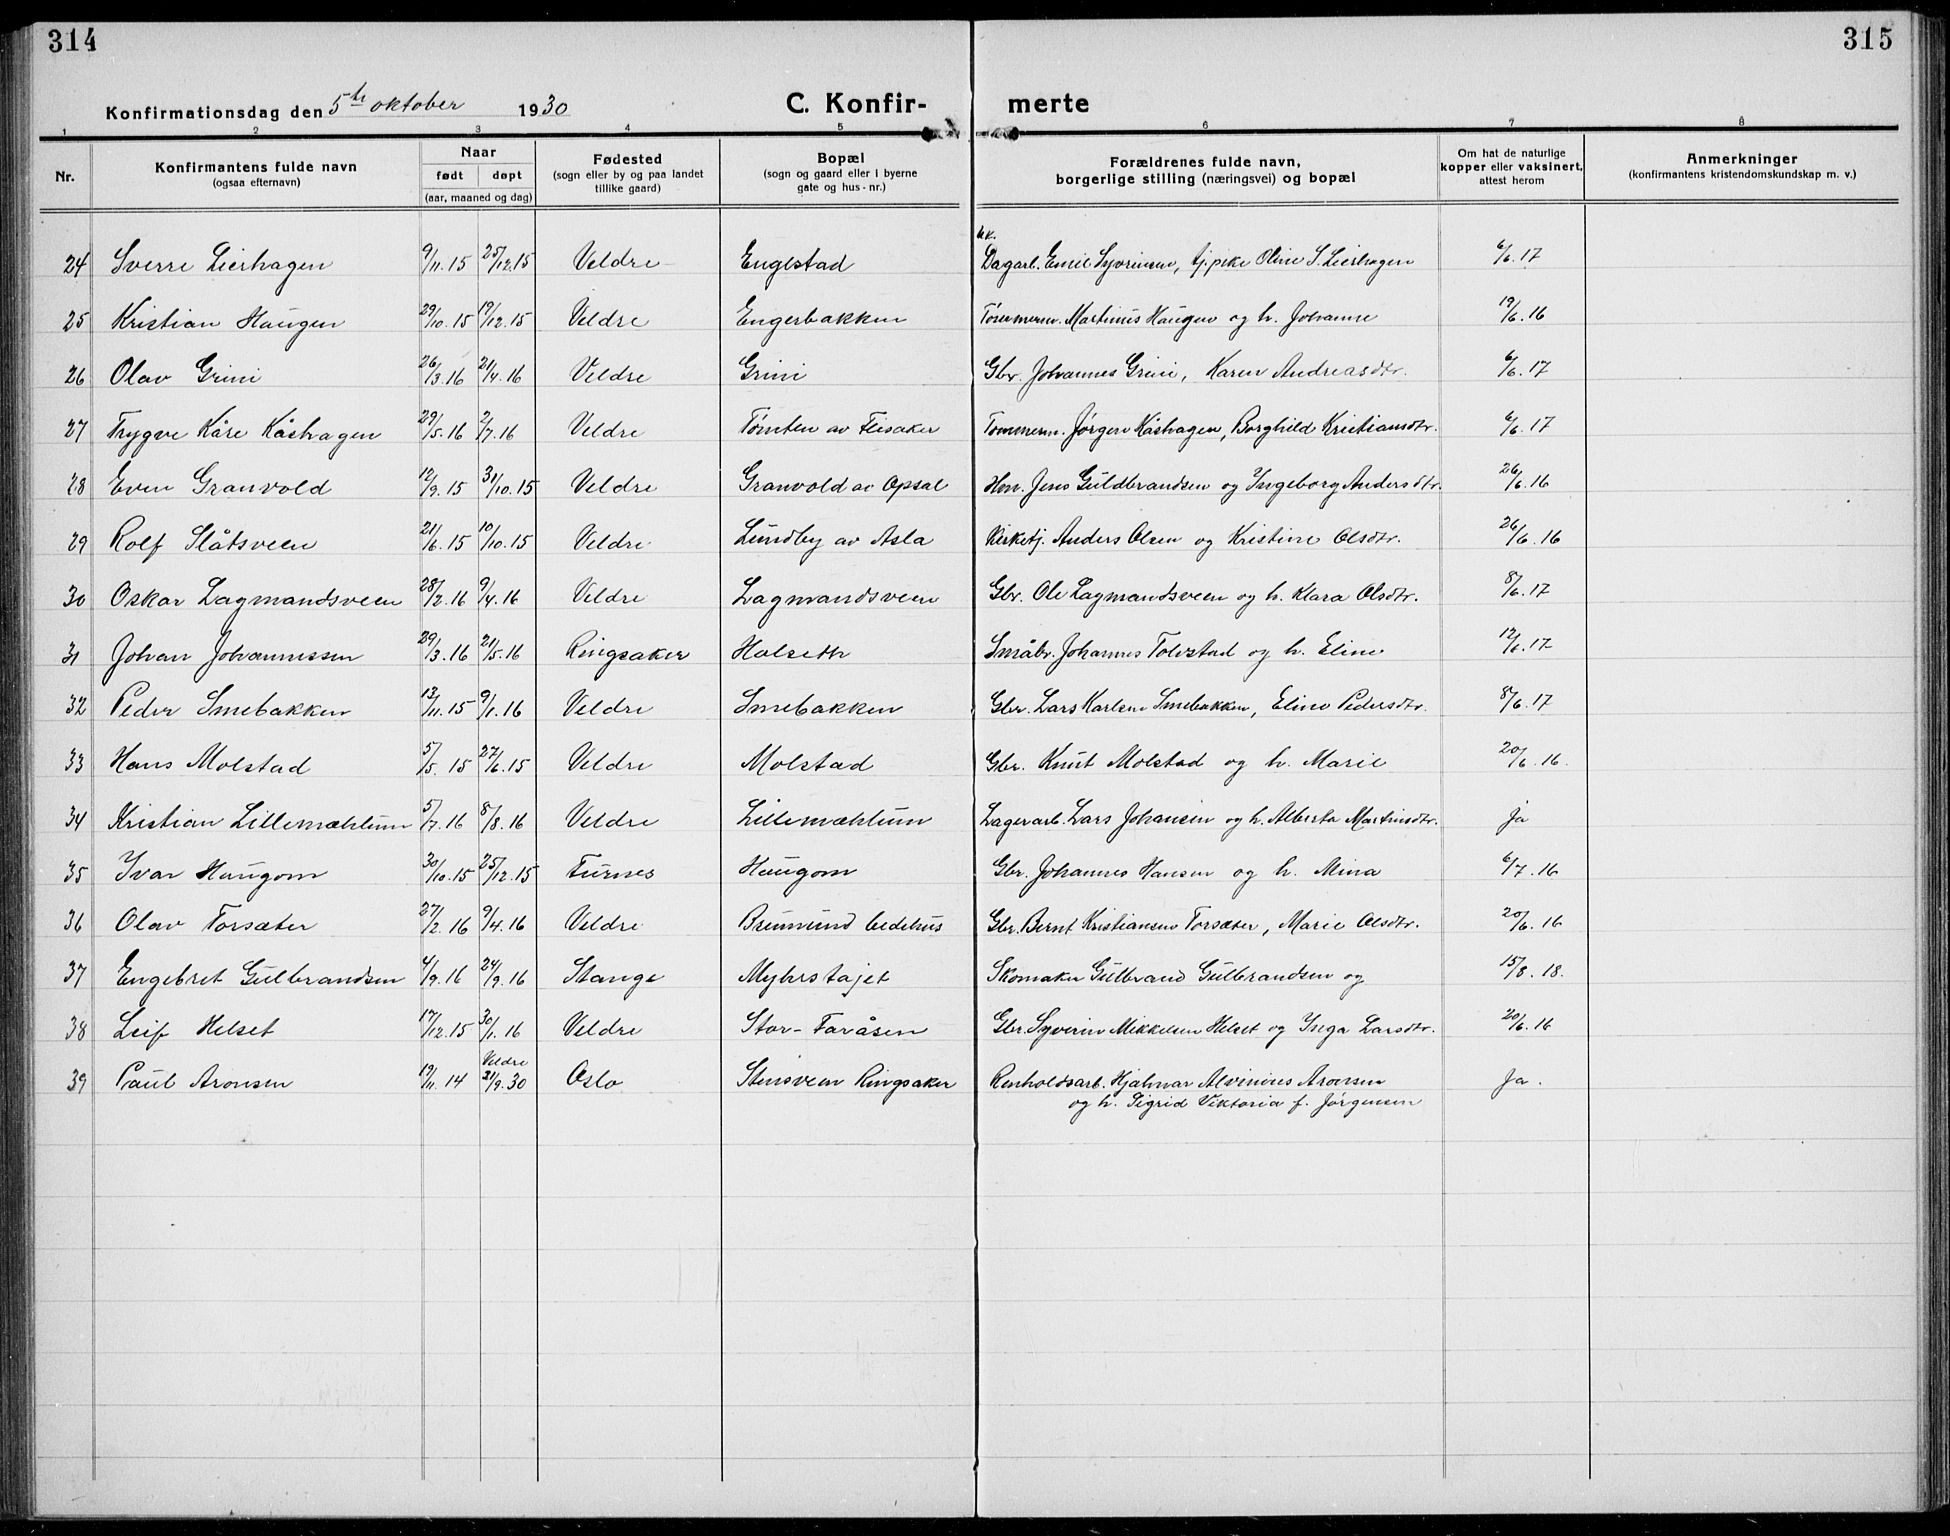 314
315
Konfirmationsdag den 5te oktober 1930
C. Konfir-
merte
1 2 3 4 5 6 7 8
Nr.
Konfirmantens fulde navn
(ogsaa efternavn)
Naar
født døpt
(aar, maaned og dag)
Fødested
(sogn eller by og paa landet
tillike gaard)
Bopæl
(sogn og gaard eller i byerne
gate og hus-nr.)
Forældrenes fulde navn,
borgerlige stilling (næringsvei) og bopæl
Om hat de naturlige
kopper eller vaksinert,
attest herom
Anmerkninger
(konfirmantens kristendomskundskap m. v.)
u.k.
24 Sverre Lierhagen 9/11.15 25/12.15 Veldre Englstad Dagarb. Emil Syvrinsen, tj.pike Oline S. Lierhagen 6/6.17
25 Kristian Haugen 29/10.15 19/12.15 Veldre Engerbakken Tømmerm. Martinus Haugen og h. Johanne 19/6.16
26 Olav Grini 26/3.16 21/4.16 Veldre Grini Gbr. Johannes Grini, Karen Andreasdtr. 6/6.17
27 Trygve Kåre Kåshagen 29/5.16 2/7.16 Veldre Tømten av Flisaker Tømmerm. Jørgen Kåshagen, Borghild Kristiansdtr. 6/6.17
28 Even Granvold 12/9.15 31/10.15 Veldre Granvold av Opsal Hmn. Jens Guldbrandsen og Ingeborg Andersdtr. 26/6.16
29 Rolf Slåtsveen 21/6.15 10/10.15 Veldre Lundby av Asla Kirketj. Anders Olsen og Kristine Olsdtr. 26/6.16
30 Oskar Lagmandsveen 28/2.16 9/4.16 Veldre Lagmandsveen Gbr. Ole Lagmandsveen og h. Klara Olsdtr. 8/6.17
31 Johan Johannessen 29/3.16 21/5.16 Ringsaker Holseth Småbr. Johannes Tolvstad og h. Eline 12/6.17
32 Peder Smebakken 13/11.15 9/1.16 Veldre Smebakken Gbr. Lars Karlsen Smebakken, Eline Pedersdtr. 8/6.17
33 Hans Molstad 5/5.15 27/6.15 Veldre Molstad Gbr. Knut Molstad og h. Marie 20/6.16.
34 Kristian Lillemæhlum 5/7.16 8/8.16 Veldre Lillemæhlum Lagerarb. Lars Johansen og h. Alberta Martinsdtr. Ja
35 Ivar Haugom 30/10.15 25/12.15 Furnes Haugom Gbr. Johannes Hansen og h. Mina 6/7.16
36 Olav Torsæter 27/2.16 9/4.16 Veldre Brumund bedehus Gbr. Bernt Kristiansen Torsæter, Marie Olsdtr. 20/6.16
37 Engebret Gulbrandsen 4/9.16 24/9.16 Stange Myhrstajet Skomaker Gulbrand Gulbrandsen og 15/8.18.
38 Leif Helset 17/12.15 30/1.16 Veldre Stor-Tavåsen Gbr. Syverin Mikkelsen Helset og Inga Larsdtr. 20/6.16
39 Paul Aronsen 19/11.14 Veldre 21/9.30 Oslo Stensveen Ringsaker Renholdsarb. Hjalmar Alvinius Aronsen Ja.
og h. Sigrid Viktoria f. Jørgensen